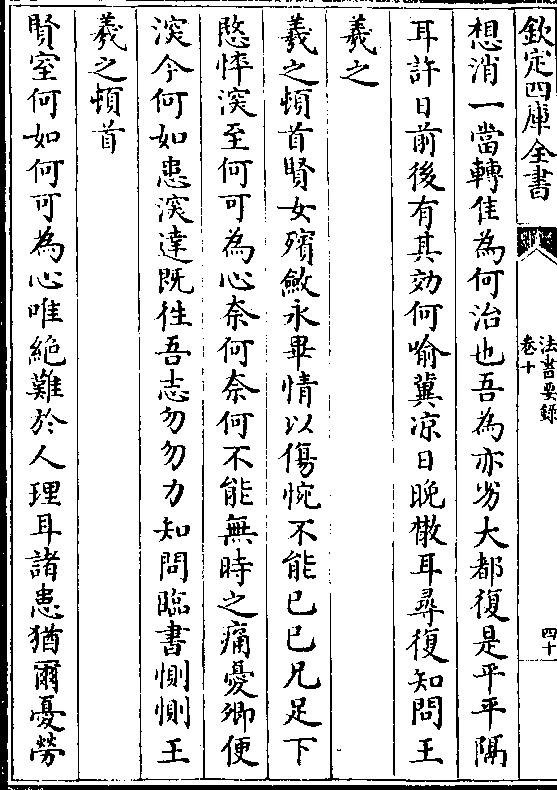 欽定四庫全書
法書要錄
卷十
四十
想消一當轉佳為何治也吾為亦劣大都復是平平隔
耳許日前後有其効何喻冀涼日晚㪚耳尋復知問王
羲之
羲之頓首賢女殯斂永畢情以傷惋不能已已兄足下
愍悴深至何可為心奈何奈何不能無時之痛憂卿便
深今何如患深達既往吾志勿勿力知問臨書惻惻王
羲之頓首
賢室何如何可為心唯絕難於人理耳諸患猶爾憂勞